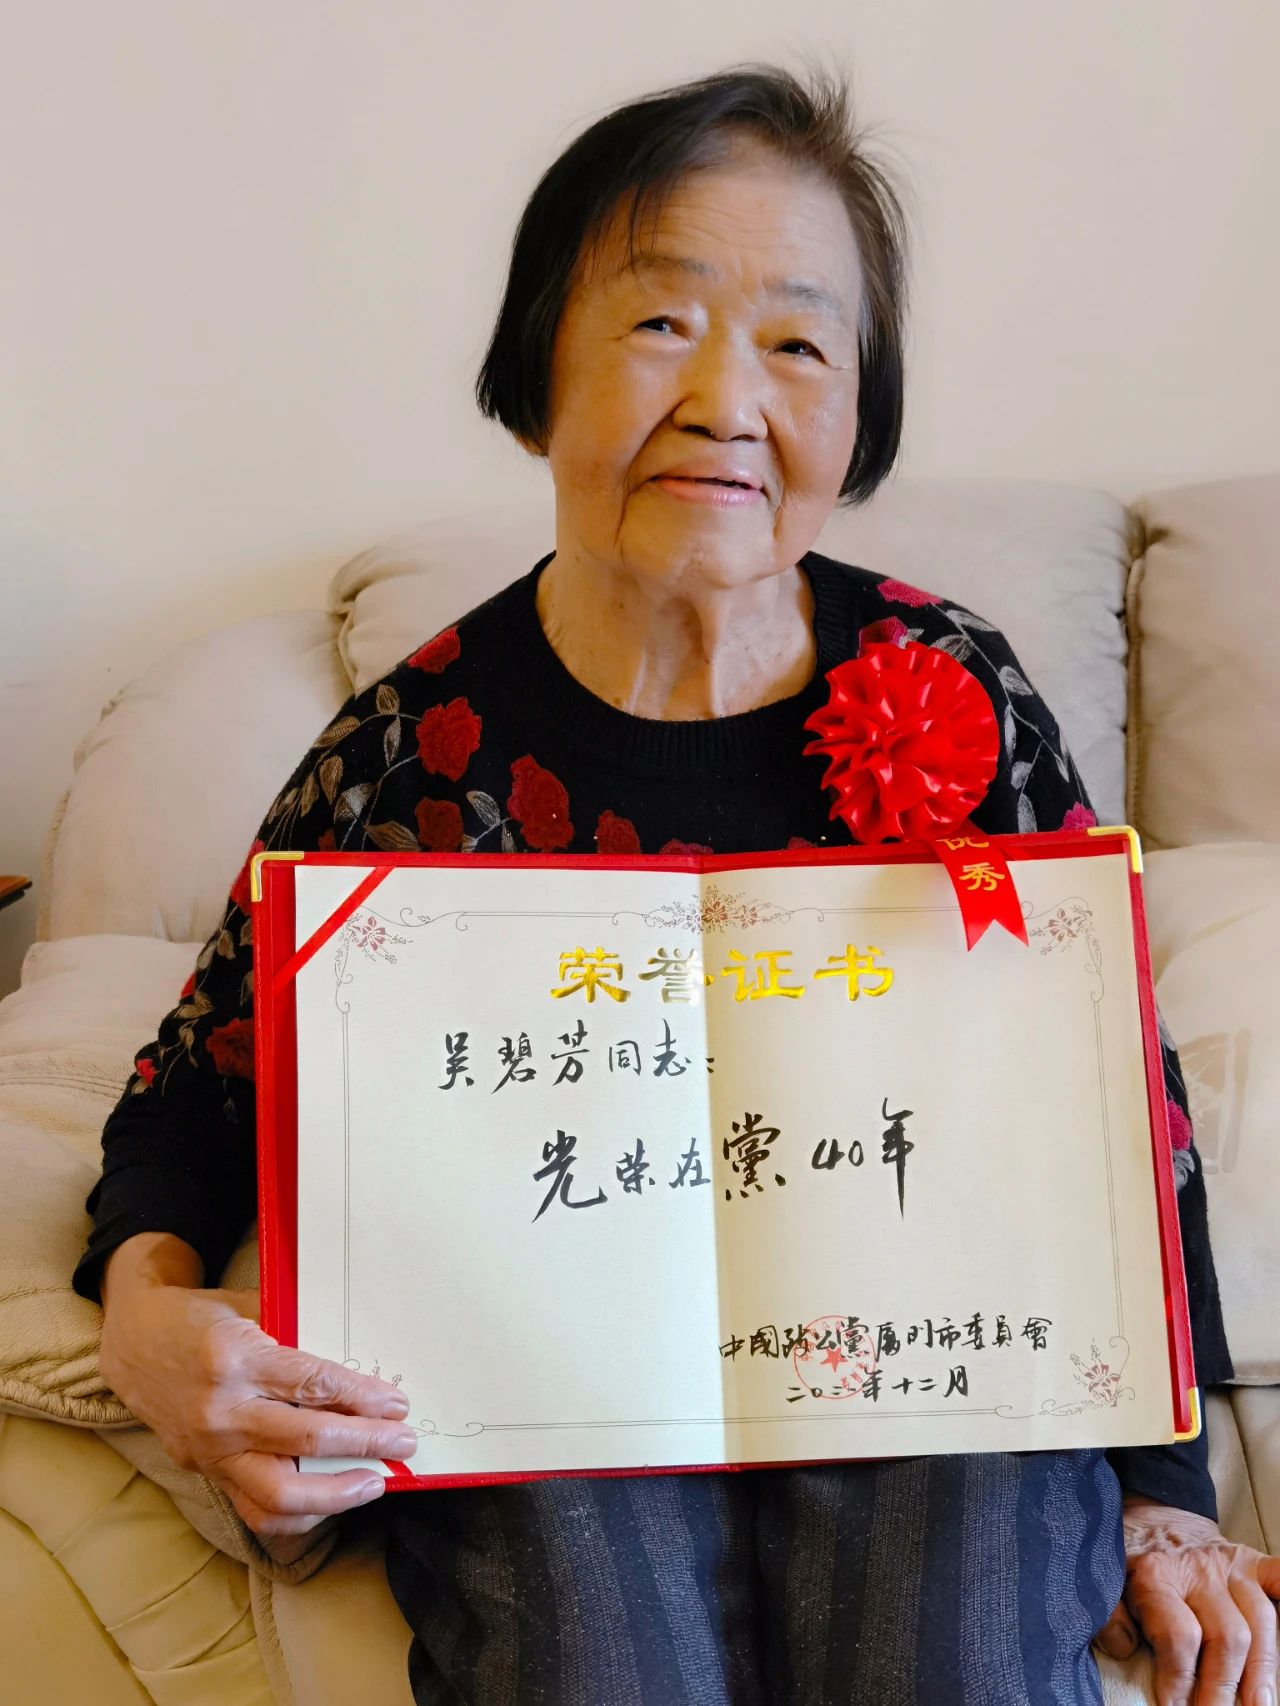 优秀
荣誉证书
吴碧芳同志：
光荣在黨40年
中國致公黨厦门市委員會
二〇二一年十二月